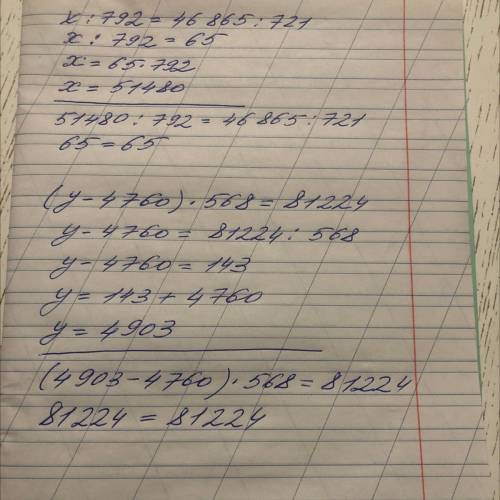 x : 792 = 46 865 : 721
x : 792 = 65
x = 65 · 792
x = 51480
51480 : 792 = 46 865 : 721
65 = 65
(y - 4760) · 568 = 81224
y - 4760 = 81224 : 568
y - 4760 = 143
y = 143 + 4760
y = 4903
(4903 - 4760) · 568 = 81224
81224 = 81224